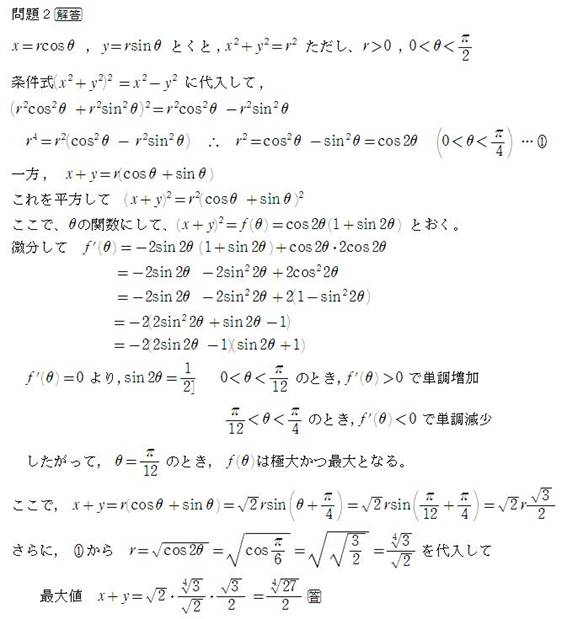 問題2 解答
x=rcosθ , y=rsinθ とくと, x²+y²=r² ただし、r>0 , 0<θ<π/2
条件式(x²+y²)²=x²−y² に代入して,
(r²cos²θ +r²sin²θ)²=r²cos²θ −r²sin²θ
r⁴=r²(cos²θ − r²sin²θ) ∴ r²=cos²θ −sin²θ=cos2θ (0<θ<π/4) …①
一方, x+y=r(cosθ+sinθ)
これを平方して (x+y)²=r²(cosθ +sinθ)²
ここで、θの関数にして、(x+y)²=f(θ)=cos2θ(1+sin2θ) とおく。
微分して f′(θ)=−2sin2θ (1+sin2θ)+cos2θ·2cos2θ
=−2sin2θ −2sin²2θ+2cos²2θ
=−2sin2θ −2sin²2θ+2(1−sin²2θ)
=−2(2sin²2θ+sin2θ−1)
=−2(2sin2θ −1)(sin2θ+1)
f′(θ)=0 より, sin2θ=1/2] 0<θ<π/12 のとき, f′(θ)>0 で単調増加
π/12<θ<π/4 のとき, f′(θ)<0 で単調減少
したがって, θ=π/12 のとき, f(θ)は極大かつ最大となる。
ここで, x+y=r(cosθ+sinθ)=√2rsin(θ+π/4)=√2rsin(π/12+π/4)=√2r√3/2
さらに, ①から r=√cos2θ=√(cosπ/6)=√(√3/2)=∜3/√2 を代入して
最大値 x+y=√2·∜3/√2·√3/2=∜27/2 答